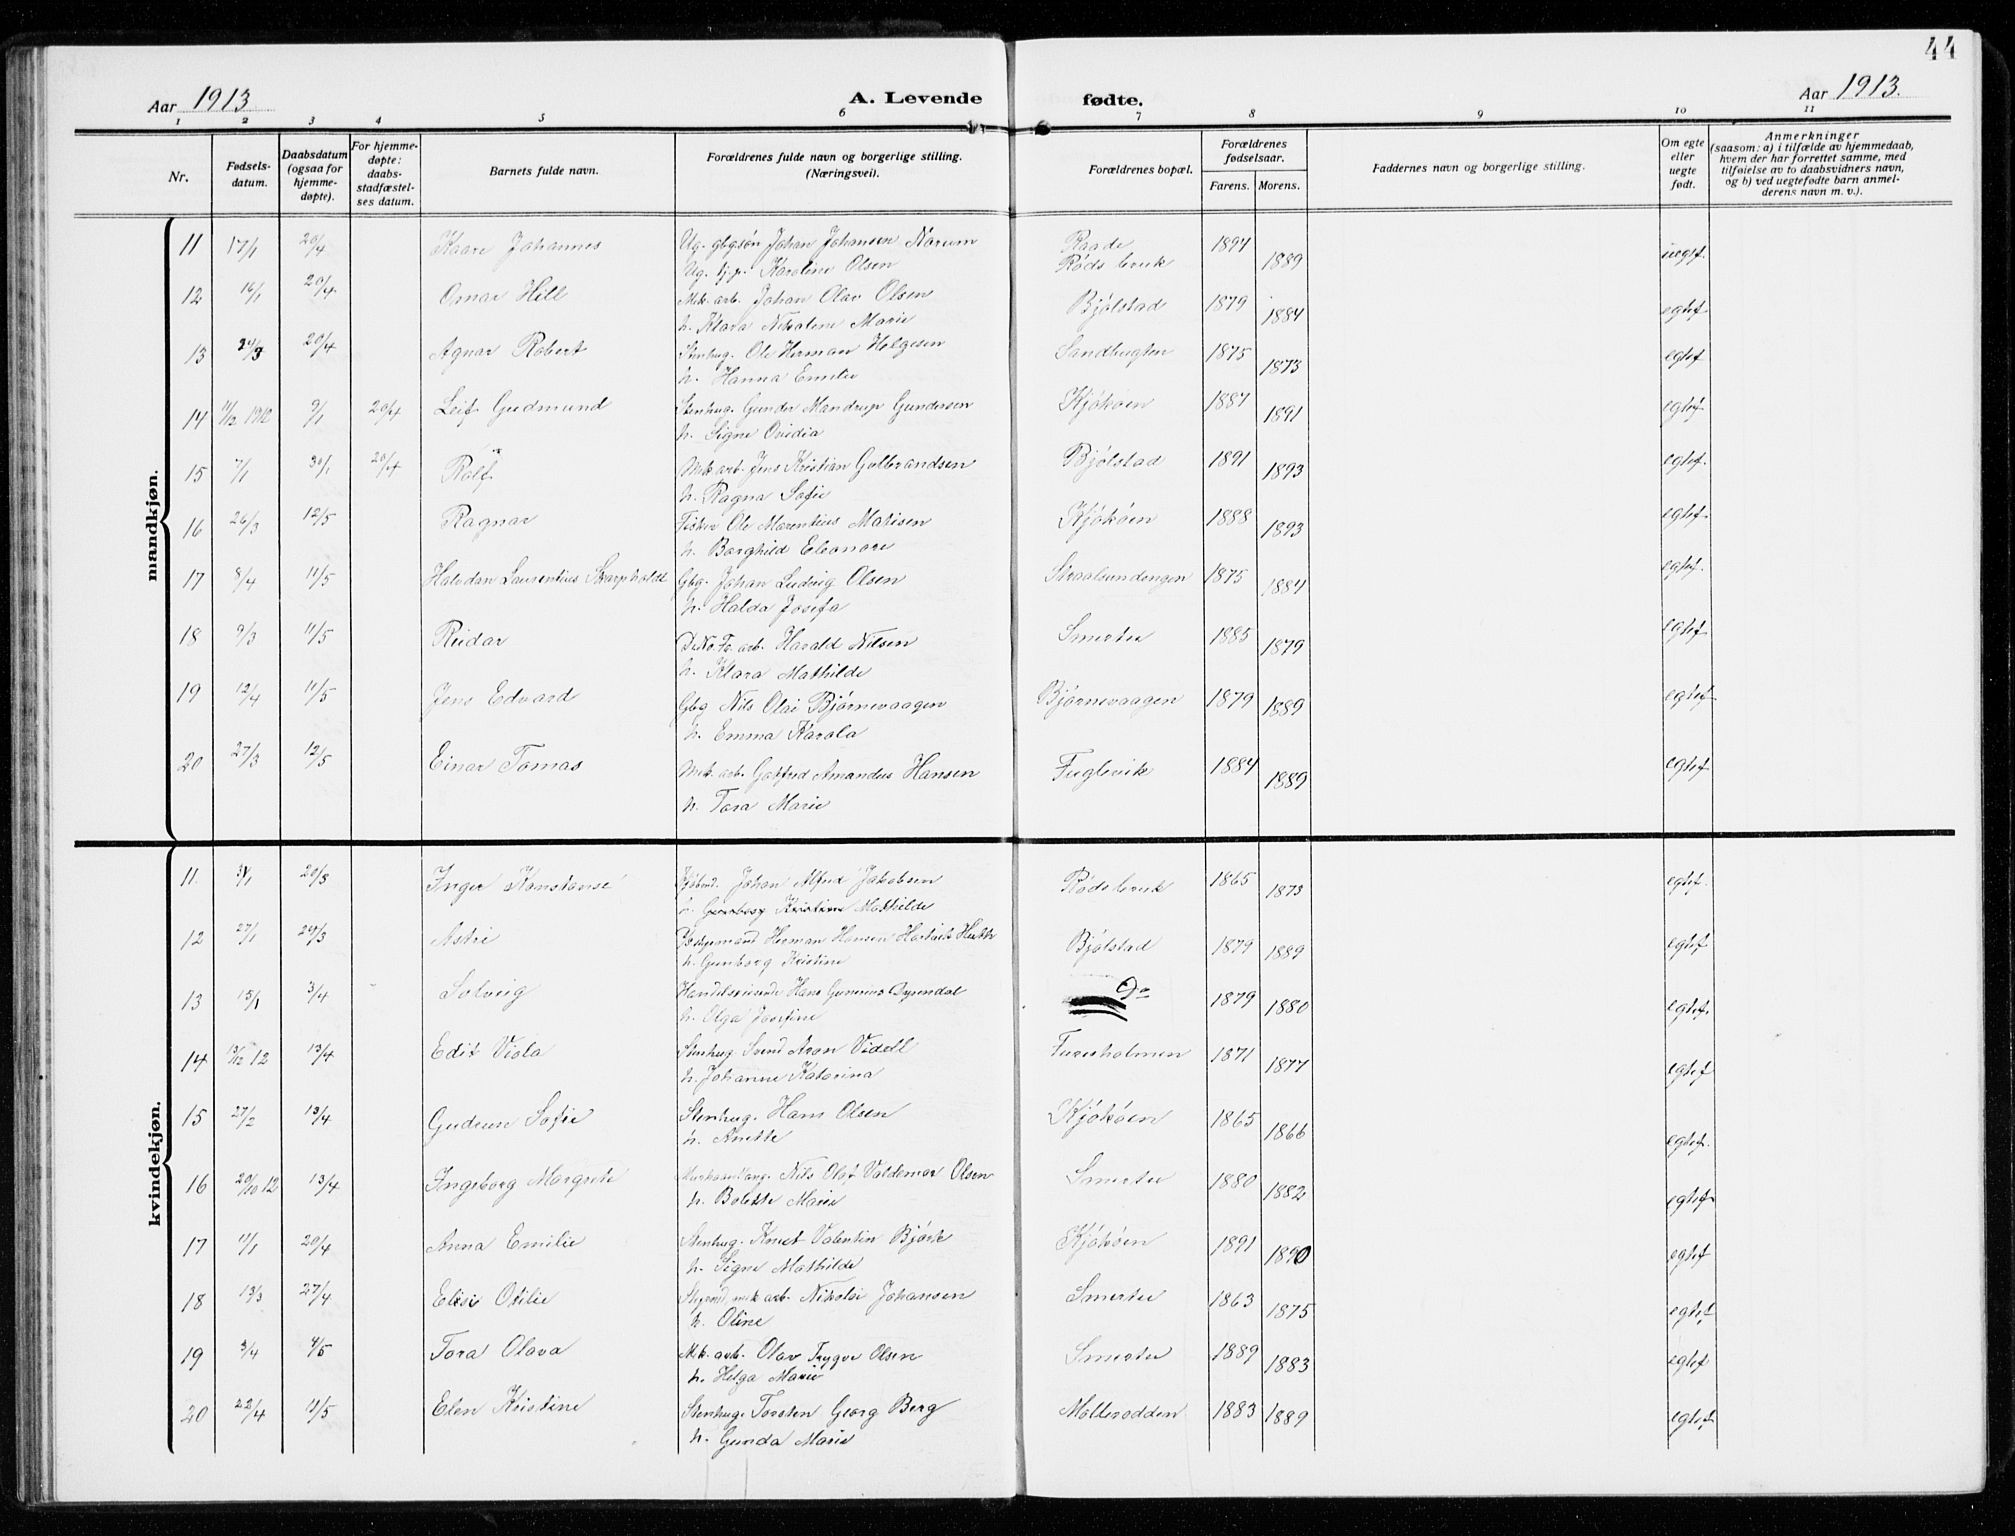 44
Aar 1913
A. Levende fødte.
Aar 1913.
1 2 3 4 5 6 7 8 9 10 11
Nr.
Fødsels-
datum.
Daabsdatum
(ogsaa for
hjemme-
døpte).
For hjemme-
døpte:
daabs-
stadfæstel-
ses datum.
Barnets fulde navn.
Forældrenes fulde navn og borgerlige stilling.
(Næringsvei).
Forældrenes bopæl.
Forældrenes
fødselsaar.
Farens. Morens.
Faddernes navn og borgerlige stilling.
Om egte
eller
uegte
født.
Anmerkninger
(saasom: a) i tilfælde av hjemmedaab,
hvem der har forrettet samme, med
tilføielse av to daabsvidners navn,
og b) ved uegtefødte barn anmel-
derens navn m. v.).
mandkjøn.
11 17/1 20/4 Kaare Johannes Ug. gbgsøn Johan Johansen Norum Raade 1894 uegtef.
Ug. tj.p. Karoline Olsen Røds bruk 1889
12 16/1 20/4 Omar Hill Mek. arb. Johan Olav Olsen Bjølstad 1879 egtef.
h. Klara Nikoline Marie 1884
13 20/4 Agnar Robert Stenhug. Ole Herman Holgesen Sandbugten 1875 egtef
h. Hanna Emilie 1873
14 11/12 1912 9/1 20/4 Leif Gudmund Stenhug. Gunder Mandrup Gundersen Kjøkøen 1887 egtef
h. Signe Ovidia 1891
15 7/1 30/1 20/4 Rolf Mek arb. Jens Kristian Gulbrandsen Bjølstad 1891 egtef.
h. Ragna Sofie 1893
16 26/3 12/5 Ragnar Fisker Ole Marentius Matisen Kjøkøen 1888 egtef.
h. Borghild Eleonore 1893
17 8/4 11/5 Halvdan Laurentius Skarpholdt Gbg. Johan Ludvig Olsen Straalsundengen 1875 egtef.
h. Halda Josefa 1884
18 9/3 11/5 Reidar D.No.Fr. arb. Harald Nilsen Smertu 1885 egtef
h. Klara Mathilde 1879
19 12/4 11/5 Jens Edvard Gbg Nils Olai Bjørnevaagen Bjørnevaagen 1879 egtef
h. Emma Karola 1889
20 27/3 12/5 Einar Tomas Mek. arb. Gotfred Amandus Hansen Fuglevik 1884 egtef
h. Tora Marie 1889
kvindekjøn.
11. 20/3 Inger Konstanse Johan Alfred Jakobsen Røds bruk 1865 1873 egtef.
h. Kristine Mathilde
12 27/1 24/3 Astri Herman Hansen Bjølstad 1879 1889 egtef
h. Gunborg Kristine
13 15/1 3/4 Solveig Handelsreisende Hans Gunerius Dyrendal Do 1879 1880 egtef.
h. Olga Josefine
14 13/12 12 13/4 Edit Viola Stenhug. Svend Aron Videll Furuholmen 1871 1877 egtef
h. Johanne Katarina
15 27/2 13/4 Gudrun Sofie Stenhug. Hans Olsen Kjøkøen 1865 1866 egtef.
h. Anette
16 20/10 12 13/4 Ingeborg Margrete Nils Olaf Valdemar Olsen Smertu 1880 1882 egtef
h. Bolette Marie
17 11/1 20/4 Anna Emilie Stenhug. Knut Valentin Bjørk Kjøkøen 1891 1890 egtef
h. Signe Mathilde
18 13/3 27/4 Elisi Otilie mek arb. Nikolai Johansen Smertu 1863 1875 egtef
h. Oline
19 3/4 4/5 Tora Olava Mek. arb. Olav Trygve Olsen Smertu 1889 1883 egtef
h. Helga Marie
20 22/4 11/5 Elen Kristine Stenhug. Torsten Georg Berg Mollerodden 1883 1889 egtef
h. Gunda Marie